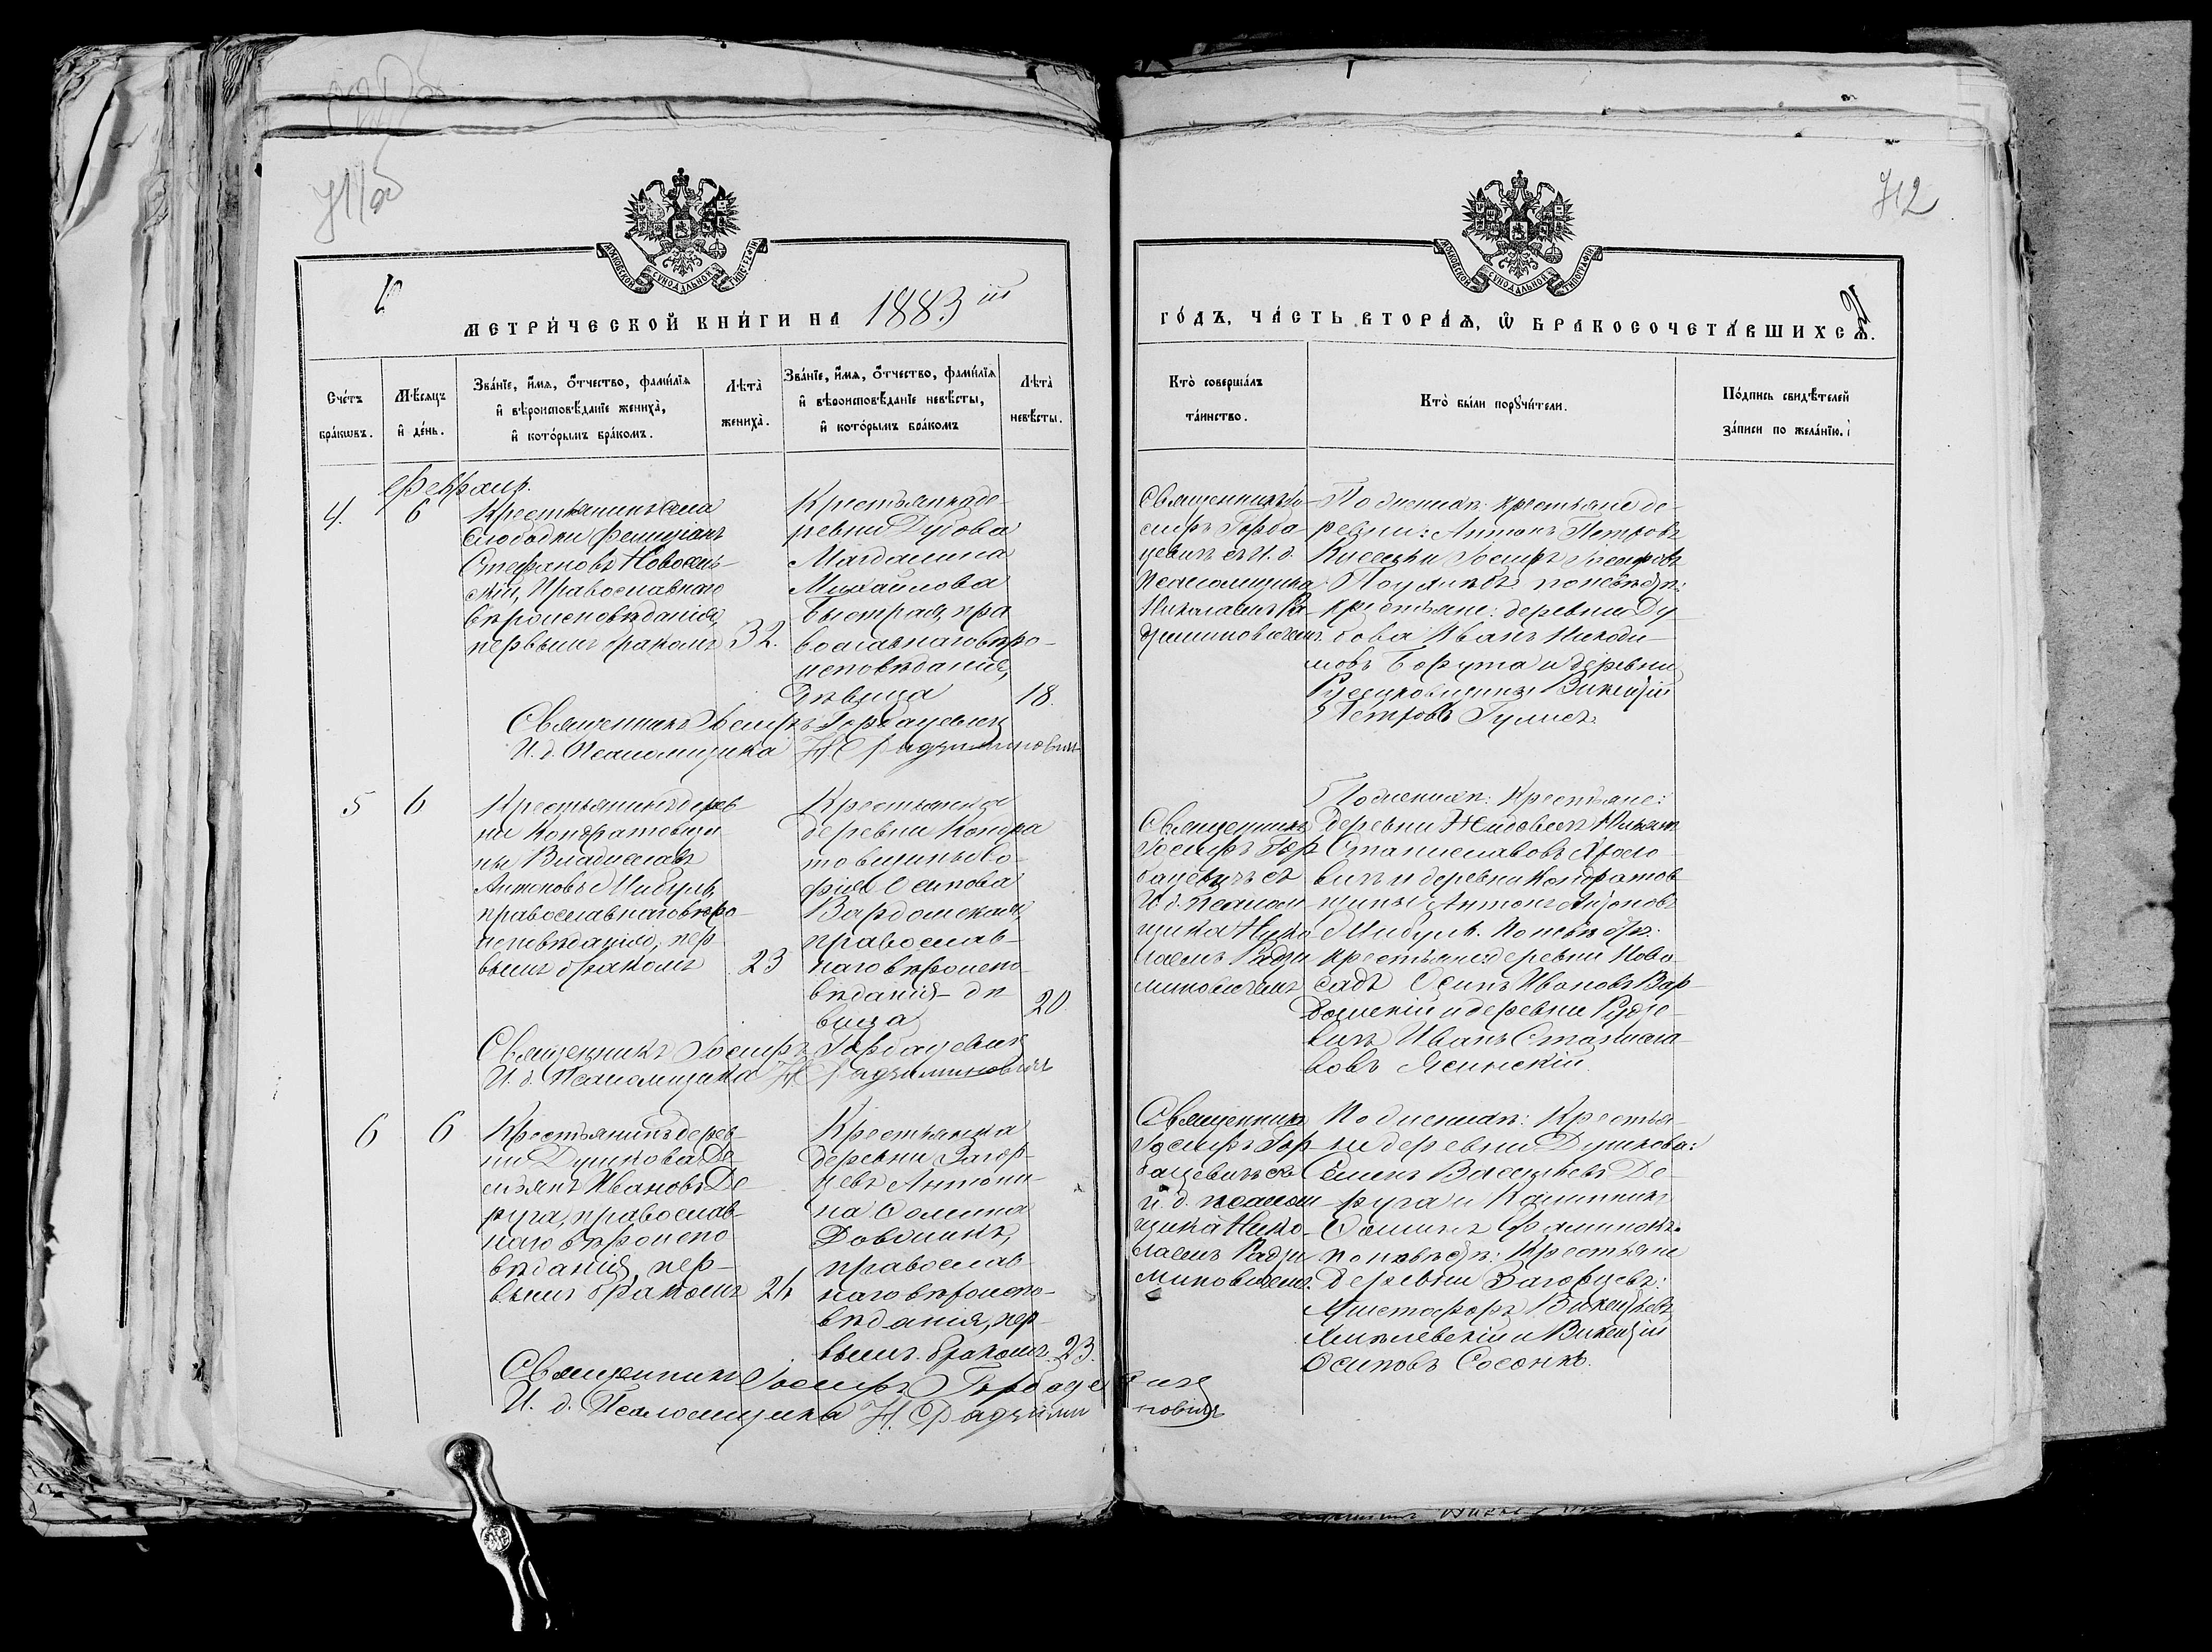 711об
712
МОСКОВСКОЙ СУНОДАЛЬНОЙ ТИПОГРАФІИ
МОСКОВСКОЙ СУНОДАЛЬНОЙ ТИПОГРАФІИ
МЕТРИ́ЧЕСКОЙ КНИ́ГИ НА 1883 ій
ГО́ДЪ, ЧА́СТЬ ВТОРА́Ѧ, Ѡ҆ БРАКОСОЧЕТА́ВШИХСѦ.
Сче́тъ бра́кѡвъ.
Мѣ́сѧцъ и҆ де́нь.
Зва́нїе, и҆́мѧ, ѻ҆́тчество, фами́лїѧ
и҆ вѣроисповѣ́данїе жениха̀,
и҆ кото́рымъ бра́комъ.
Лѣта̀ жениха̀.
Зва́нїе, и҆́мѧ, ѻ҆́тчество, фами́лїѧ
и҆ вѣроисповѣ́данїе невѣ́сты,
и҆ кото́рымъ бра́комъ
Лѣта̀ невѣ́сты.
Кто̀ соверша́лъ
та́инство.
Кто̀ бы́ли порꙋчи́тели.
По́дпись свидѣ́телей
за́писи по жела́нїю.
Февраля.
4.
6
Крестьянинъ села
Слободки Фелиціянъ
Стефановъ Новосель-
скій, Православнаго
вѣроисповѣданія,
первымъ бракомъ
32.
Крестьянка де-
ревни Дубова
Магдалина
Михайлова
Быстрая, пра
вославнаго вѣро-
исповѣданія,
дѣвица
18.
Священникъ Іо-
сифъ Горба
цевичъ съ И. д.
Псаломщика
Николаемъ Ра-
дзиминовичемъ.
По женихѣ: крестьяне де-
ревни: Антонъ Петровъ
Іосифъ Іосифовъ
по невѣстѣ:
крестьяне: деревни Ду
бова Иванъ Никоди-
мовъ Борута и деревни
Викентій
Петровъ
Священникъ Іосифъ Горбацевичъ
И. д. Псаломщика Н. Радзиминовичъ
5
6
Крестьянинъ дерев
ни Кондратовщи
ны Владиславъ
Антоновъ Мибуль,
православнаго вѣро-
исповѣданія, пер
вымъ бракомъ
23
Крестьянка
деревни Кондра
товщины Со-
фія Осипова
Вардомская,
православ-
наго вѣроиспо-
вѣданія - дѣ
вица
20.
Священникъ
Іосифъ Гор
бацевичъ съ
И. д. Псалом
щика Нико
лаемъ Радзи
миновичемъ
По женихѣ: Крестьяне:
деревни
Станиславовъ
вичъ и деревни Кондратов-
щины Антонъ Антоновъ
Мибуль. По невѣстѣ:
крестьяне деревни Ново
садъ Осипъ Ивановъ Вар-
домскій и деревни Рудзе-
вичъ Иванъ Станисла-
вовъ Ясинскій.
Священникъ Іосифъ Горбацевичъ
И. д. Псаломщика Н. Радзиминовичъ
6
6
Крестьянинъ дерев-
ни Душкова Де-
мьянъ Ивановъ Де
руга, православ-
наго вѣроиспо
вѣданія, пер-
вымъ бракомъ
24
Крестьянка
деревни Загор-
цевъ Антони-
на Фомина
православ-
наго вѣроиспо-
вѣданія, пер-
вымъ бракомъ.
23.
Священникъ
Іосифъ Гор
бацевичъ съ
И. д. псалом
щика Нико-
лаемъ Радзи
миновичемъ.
По женихѣ: Крестья-
не деревни Душкова:
Семенъ Васильевъ Де-
руга и
по невѣстѣ: Крестьяне
деревни Загорцевъ:
Викентьевъ
и Викентій
Осиповъ Сосонко.
Священникъ Іосифъ Горбацевичъ
И. д. Псаломщика Н. Радзиминовичъ